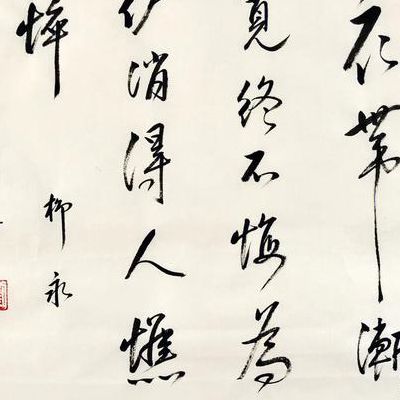 衣帶漸
寬終不悔為
伊消得人憔
悴
柳永